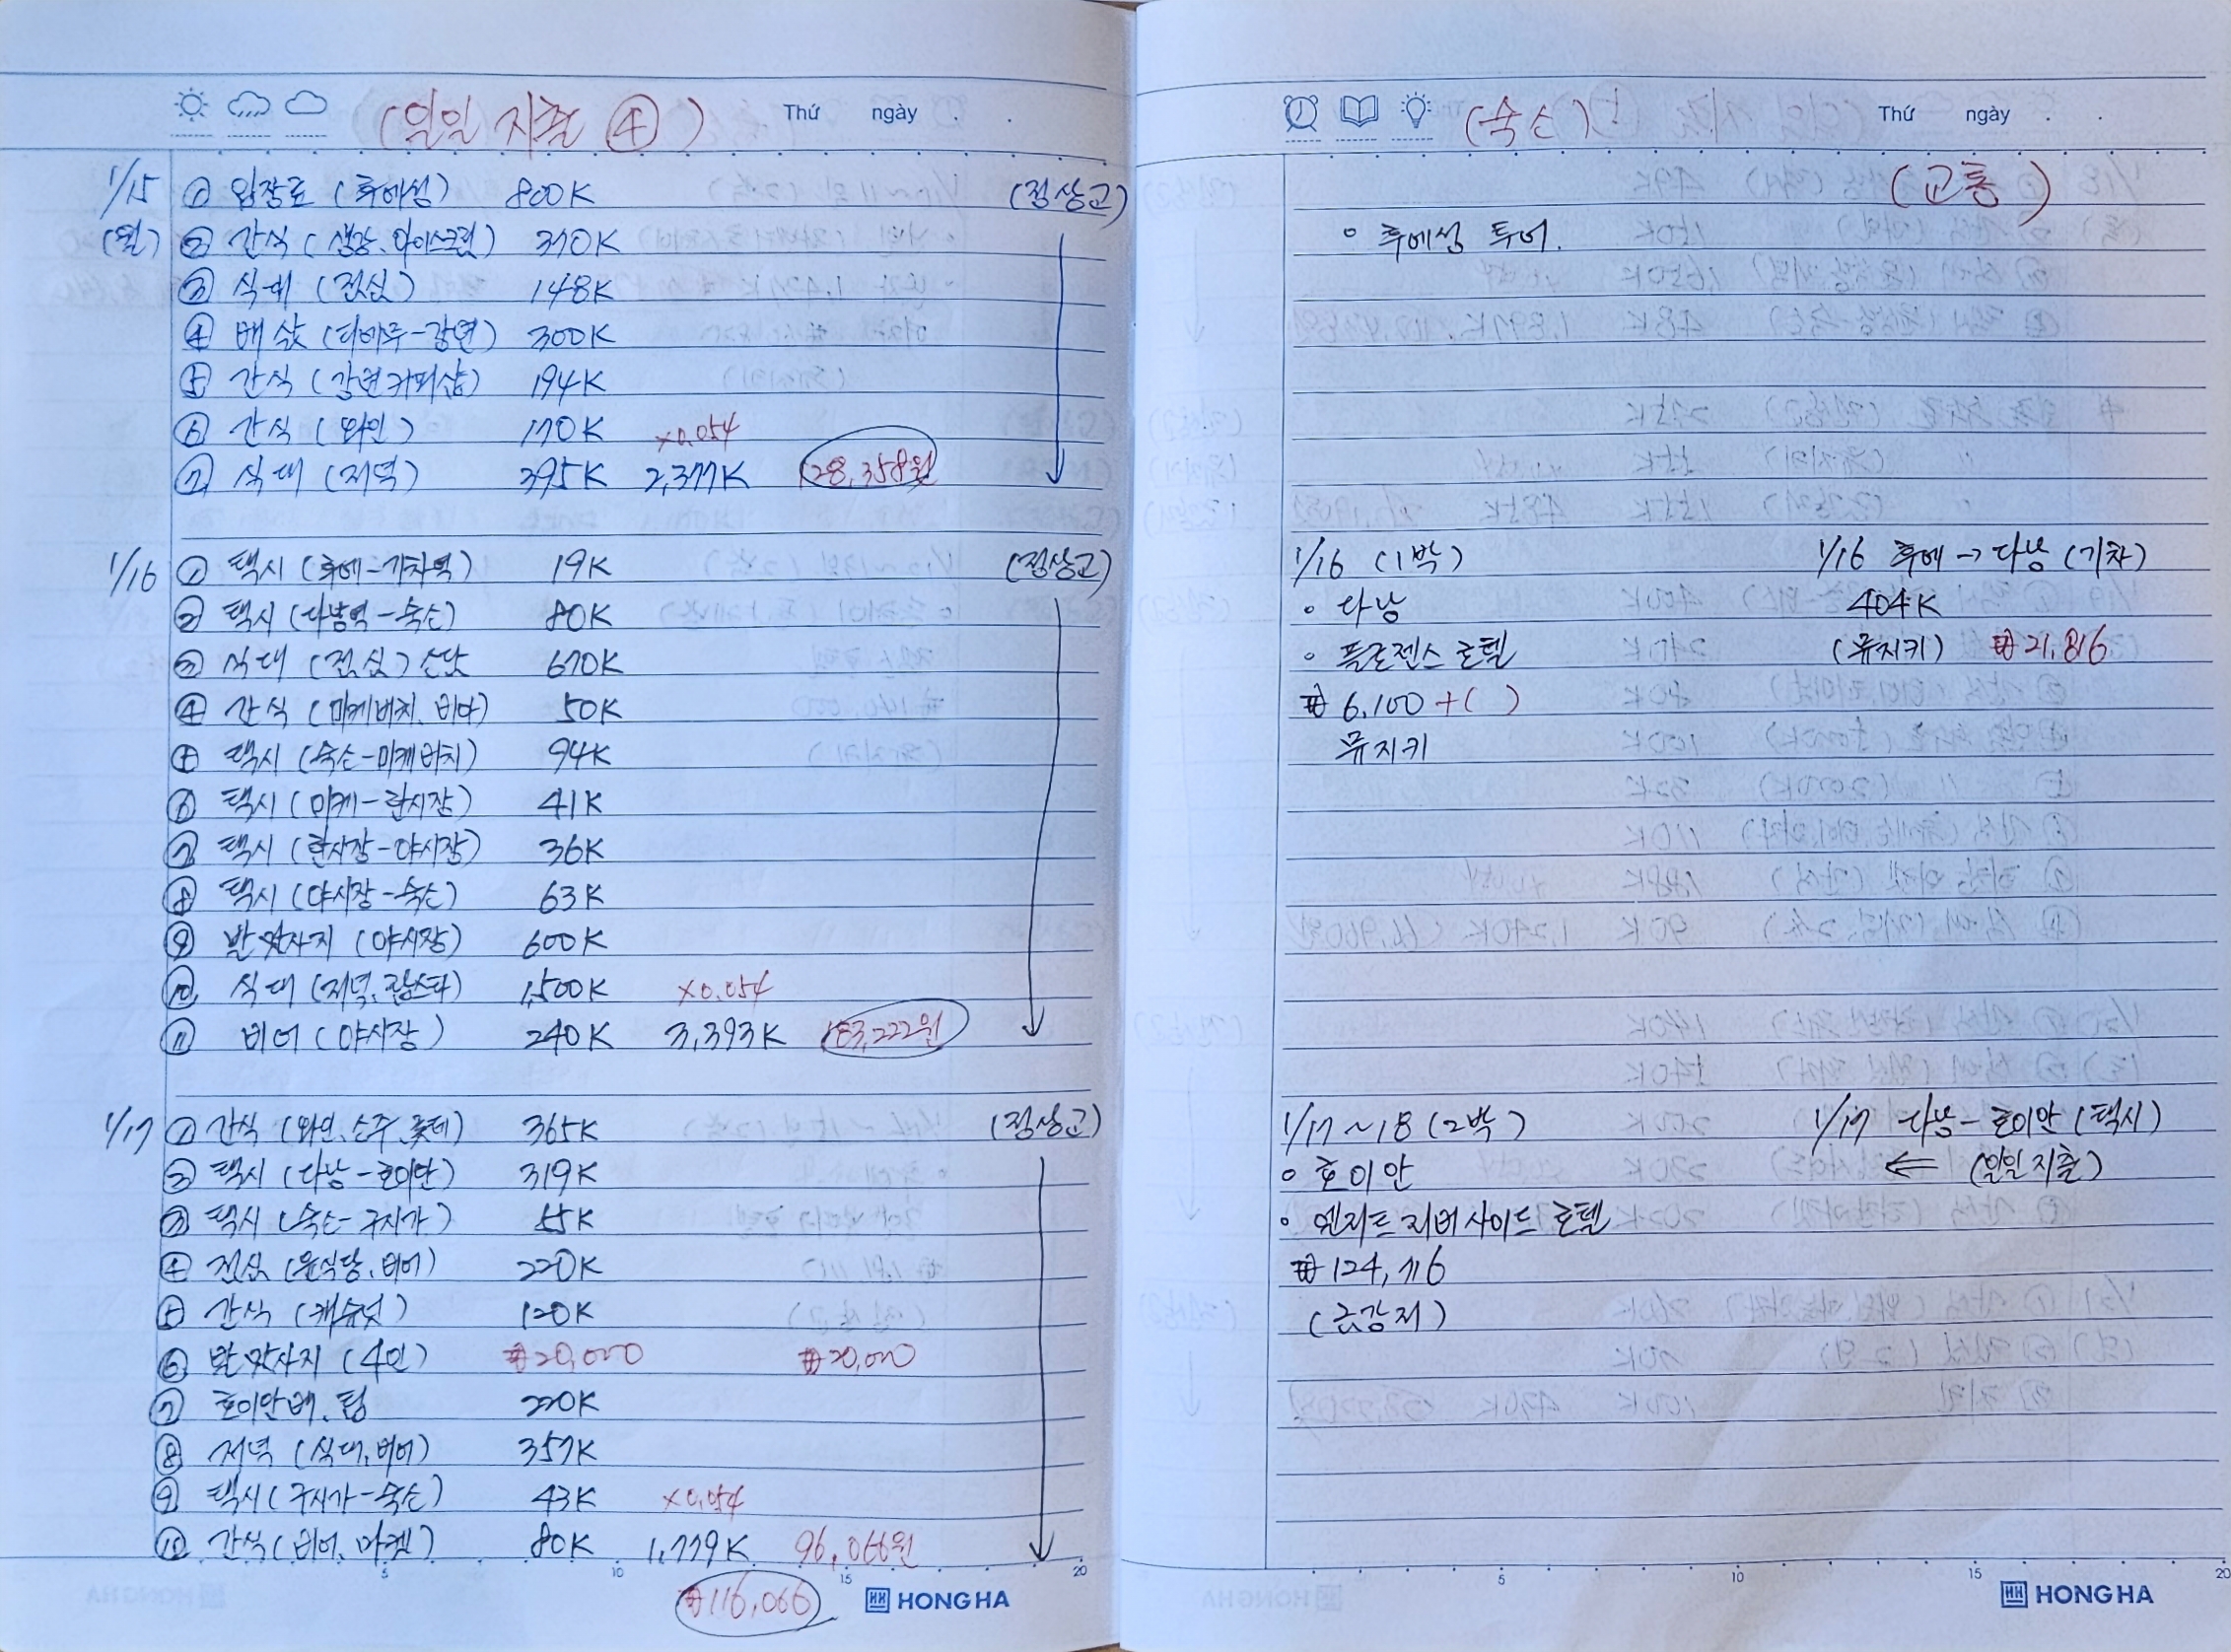 (일일 지출 ④)
Thứ ngày . .
1/15 ① 입장료 (후에성) 800K (정상교)
(월) ② 간식 (생강, 아이스크림) 370K
③ 식대 (점심) 148K
④ 배삯 (티아루-강변) 300K
⑤ 간식 (강변커피샵) 194K
⑥ 간식 (와인) 170K ×0.054
⑦ 식대 (저녁) 395K 2,377K 128,358원
1/16 ① 택시 (후에-기차역) 19K (정상교)
② 택시 (다낭역-숙소) 80K
③ 식대 (점심) 670K
④ 간식 (미케비치, 비아) 50K
⑤ 택시 (숙소-미케비치) 94K
⑥ 택시 (미케-한시장) 41K
⑦ 택시 (한시장-야시장) 36K
⑧ 택시 (야시장-숙소) 63K
⑨ 발맛사지 (야시장) 600K
⑩ 식대 (저녁, 랍스타) 1,500K ×0.054
⑪ 비어 (야시장) 240K 3,393K 183,222원
1/17 ① 간식 (와인, 소주, 롯데) 365K (정상교)
② 택시 (다낭-호이안) 319K
③ 택시 (숙소-구시가) 55K
④ 점심 (윤식당, 비어) 220K
⑤ 간식 (캐슈넛) 120K
⑥ 발맛사지 (4인) ₩20,000 ₩20,000
⑦ 호이안배, 팁 220K
⑧ 저녁 (식대, 비어) 357K
⑨ 택시 (구시가-숙소) 43K ×0.054
⑩ 간식 (비어, 마켓) 80K 1,779K 96,066원
5 10 15 20
₩116,066
HONG HA
(숙소)
Thứ ngày . .
(교통)
◦ 후에성 투어.
1/16 (1박) 1/16 후에→다낭 (기차)
◦ 다낭 404K
◦ 플로젠스 호텔 (뮤지키) ₩21,816
₩6,100 + ( )
뮤지키
1/17~18 (2박) 1/17 다낭-호이안 (택시)
◦ 호이안 ⇐ (일일지출)
◦ 엔지트 리버사이드 호텔
₩124,716
(금강저)
5 10 15 20
HONG HA